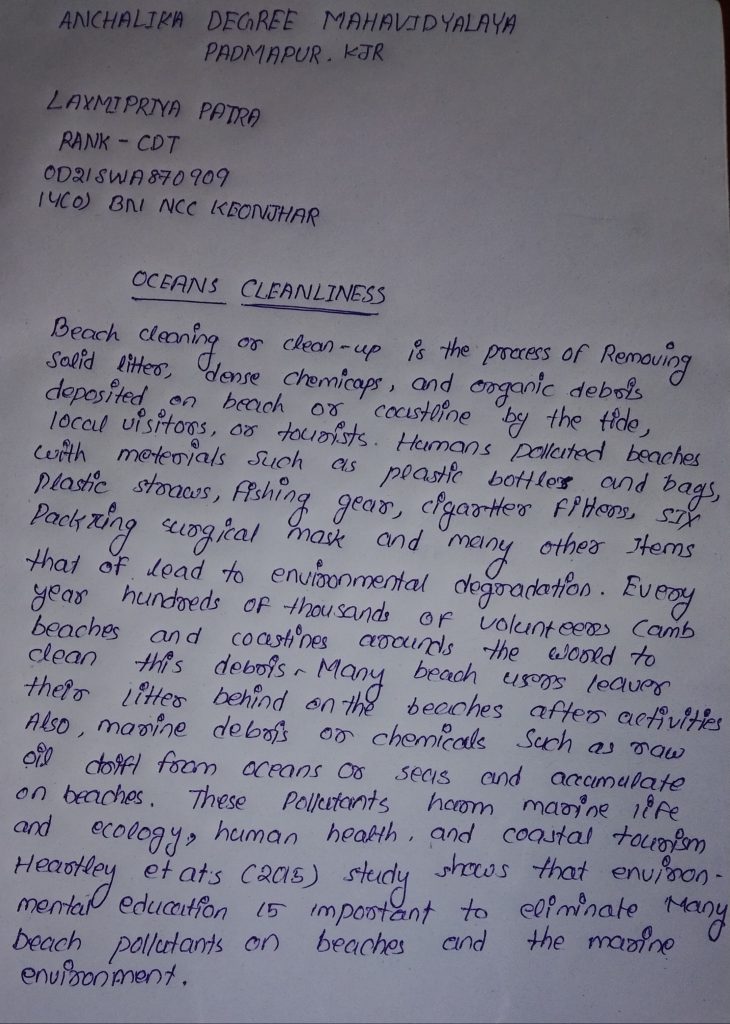 ANCHALIKA DEGREE MAHAVIDYALAYA
PADMAPUR. KJR
LAXMIPRIYA PATRA
RANK - CDT
OD21SWA870909
14(O) BN NCC KEONJHAR
OCEANS CLEANLINESS
Beach cleaning or clean-up is the process of Removing
Solid litter, dense chemicaps, and organic debris
deposited on beach or coastline by the tide,
local visitors, or tourists. Humans polluted beaches
with meterials such as plastic bottles and bags,
plastic straws, fishing gear, cigartter filters, six
Packing surgical mask and many other Items
that of lead to environmental degradation. Every
year hundreds of thousands of volunteers Camb
beaches and coastines arounds the world to
clean this debris - Many beach users leaver
their litter behind on the beaches after activities
Also, marine debris or chemicals such as raw
oil drift from oceans or seas and accumulate
on beaches. These Pollutants harm marine life
and ecology, human health, and coastal tourism
Heartley et at's (2015) study shows that environ-
mental education is important to eliminate Many
beach pollutants on beaches and the marine
environment.